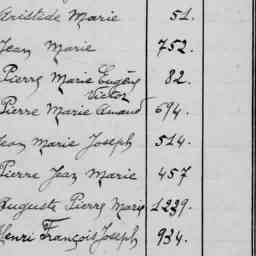 Aristide Marie 51.
Jean Marie 752.
Pierre Marie Eugène 82.
Victor
Pierre Marie Amand 694.
Jean Marie Joseph 514.
Pierre Jean Marie 457
Auguste Pierre Marie 1239.
Henri François Joseph 934.